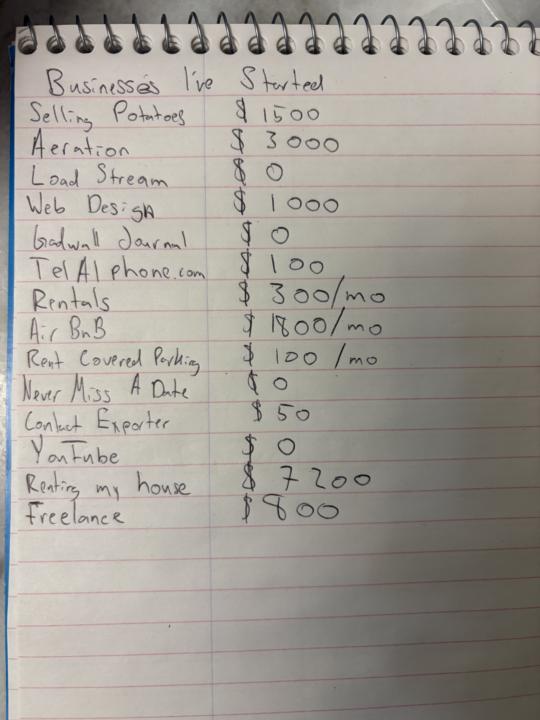 Businesses I've Started
Selling Potatoes $ 1500
Aeration $ 3000
Load Stream $ 0
Web Design $ 1000
Gadwall Journal $ 0
TelAIphone.com $ 100
Rentals $ 300/mo
Air BnB $ 1800/mo
Rent Covered Parking $ 100 /mo
Never Miss A Date $ 0
Contact Exporter $ 50
YouTube $ 0
Renting my house $ 7200
Freelance $ 800